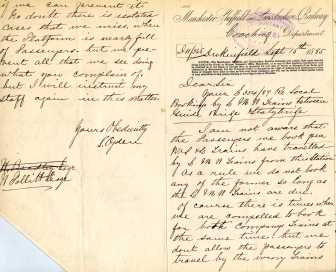 Manchester Sheffield & Lincolnshire Railway
Coaching Department
Dukinfield Sept 18th 1885
Dear Sir
Booking by L & N W Trains between
Guide Bridge & Stalybridge
I am not aware that
the Passengers we book per
M S & L Trains have travelled
by L & N W Trains from this station
As a rule we do not book
any of the former so long as
the L & N W Trains are due.
Of course there is times when
we are compelled to book
for both Company Trains at
the same time but we
dont allow the passengers to
travel by the wrong Trains
if we can prevent it.
No doubt there is isolated
cases that we miss when
the Platform is nearly full
of Passengers. but we pre-
vent all that we see doing
what you complain of.
but I will instruct my
Staff again in this matter.
Yours Obediently
J Ogden